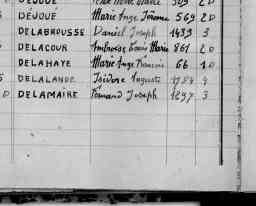 DÉJOUÉ
DÉJOUÉ Marie Ange Jérôme 569 2D
DELABROUSSE Daniel Joseph 1433 3
DELACOUR Ambroise Louis Marie 861 2D
DELAHAYE Marie Ange François 66 1D
DELALANDE Isidore Auguste
DELAMAIRE Fernand Joseph 1297 3